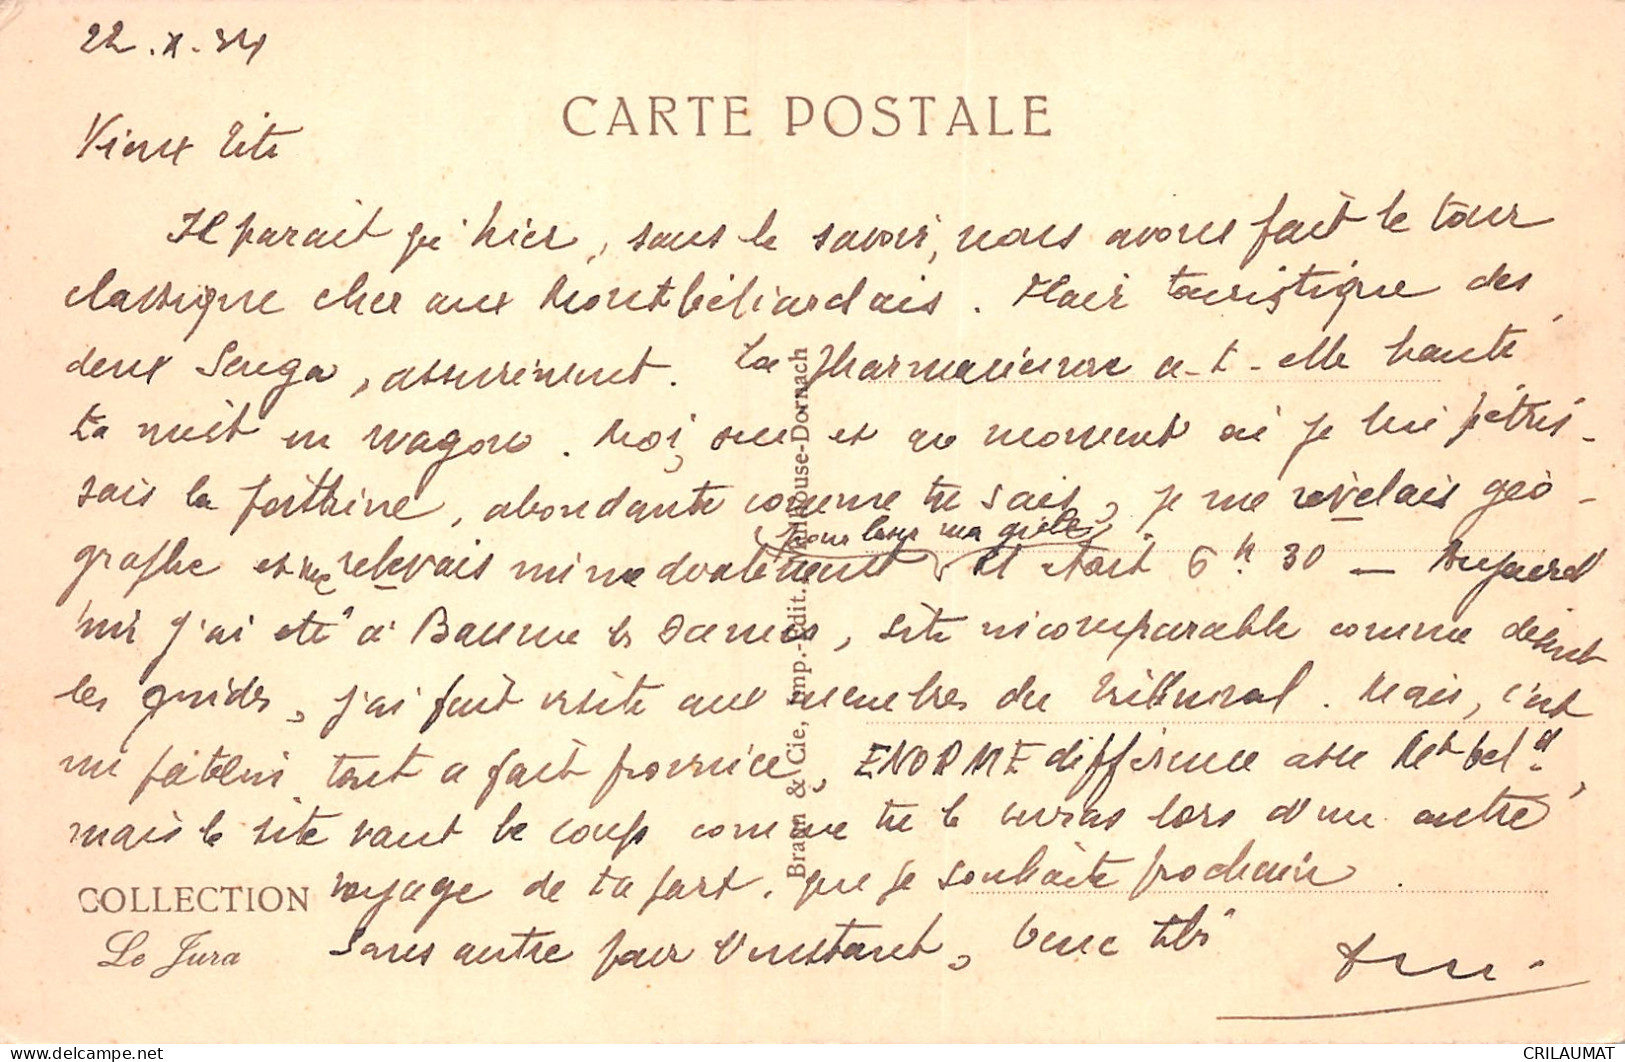 22.X.34
CARTE POSTALE
Vieux Tito
Il paraît qu'hier, sans le savoir, nous avons fait le tour
classique cher aux Montbéliardais. Flair touristique des
deux Senga, assurément. La Pharmacienne a-t-elle hanté
ta nuit en wagon. Moi, oui et au moment où je lui pétris-
sais la poitrine, abondante comme tu sais, je me révélais géo-
pour laver ma
graphe et me relevais Il était 6h.30 — Aujourd
'hui j'ai été à Baume les Dames, site incomparable comme disent
les guides, j'ai fait visite aux membres du tribunal. Mais, c'est
un patelin tout à fait province, ENORME différence avec Mtbel,
mais le site vaut le coup comme tu le verras lors d'un autre
voyage de ta part, que je souhaite prochain.
Sans autre pour l'instant, bene tibi
COLLECTION
Le Jura
Braun & Cie, Imp.-Edit. Mulhouse-Dornach
CRILAUMAT